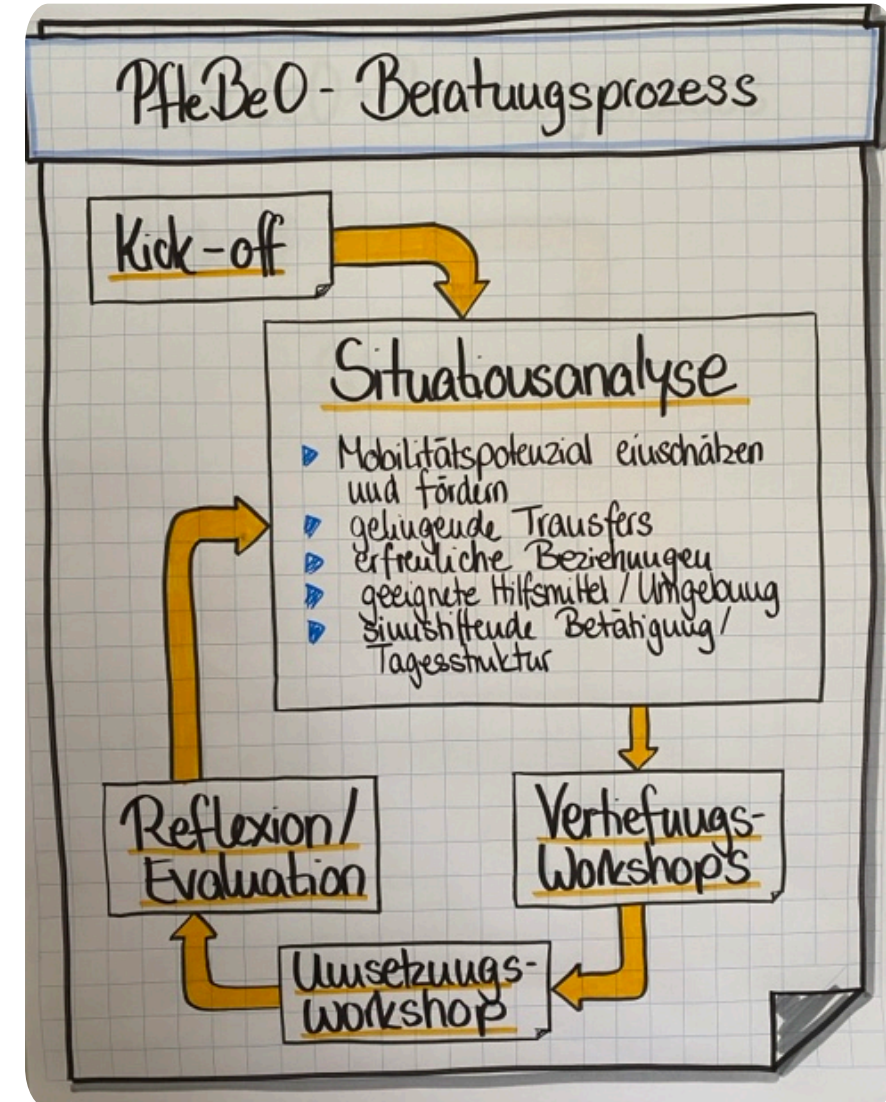 PfleBeO - Beratungsprozess
Kick-off
Situationsanalyse
Mobilitätspotenzial einschätzen
und fördern
gelingende Transfers
erfreuliche Beziehungen
geeignete Hilfsmittel / Umgebung
sinnstiftende Betätigung /
Tagesstruktur
Vertiefungs-
Workshops
Umsetzungs-
workshop
Reflexion /
Evaluation